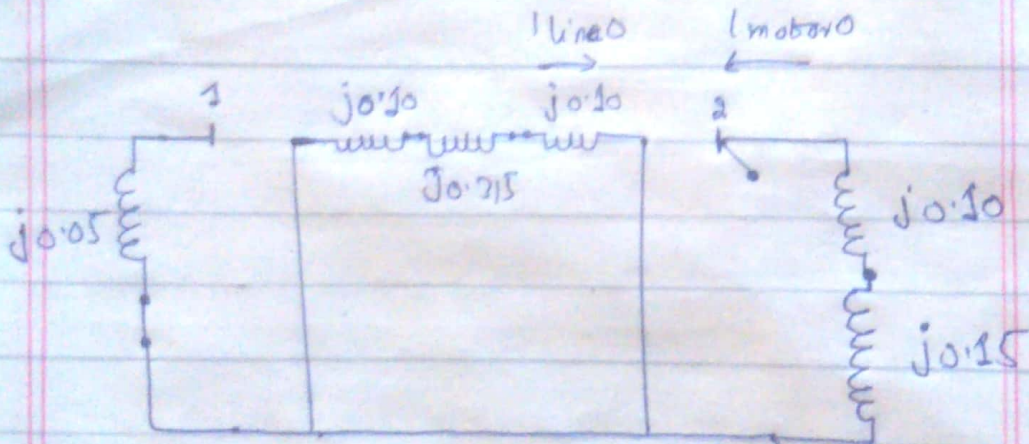 I line0 I motor0
1 j0.10 j0.10 2
j0.05 j0.10
j0.15